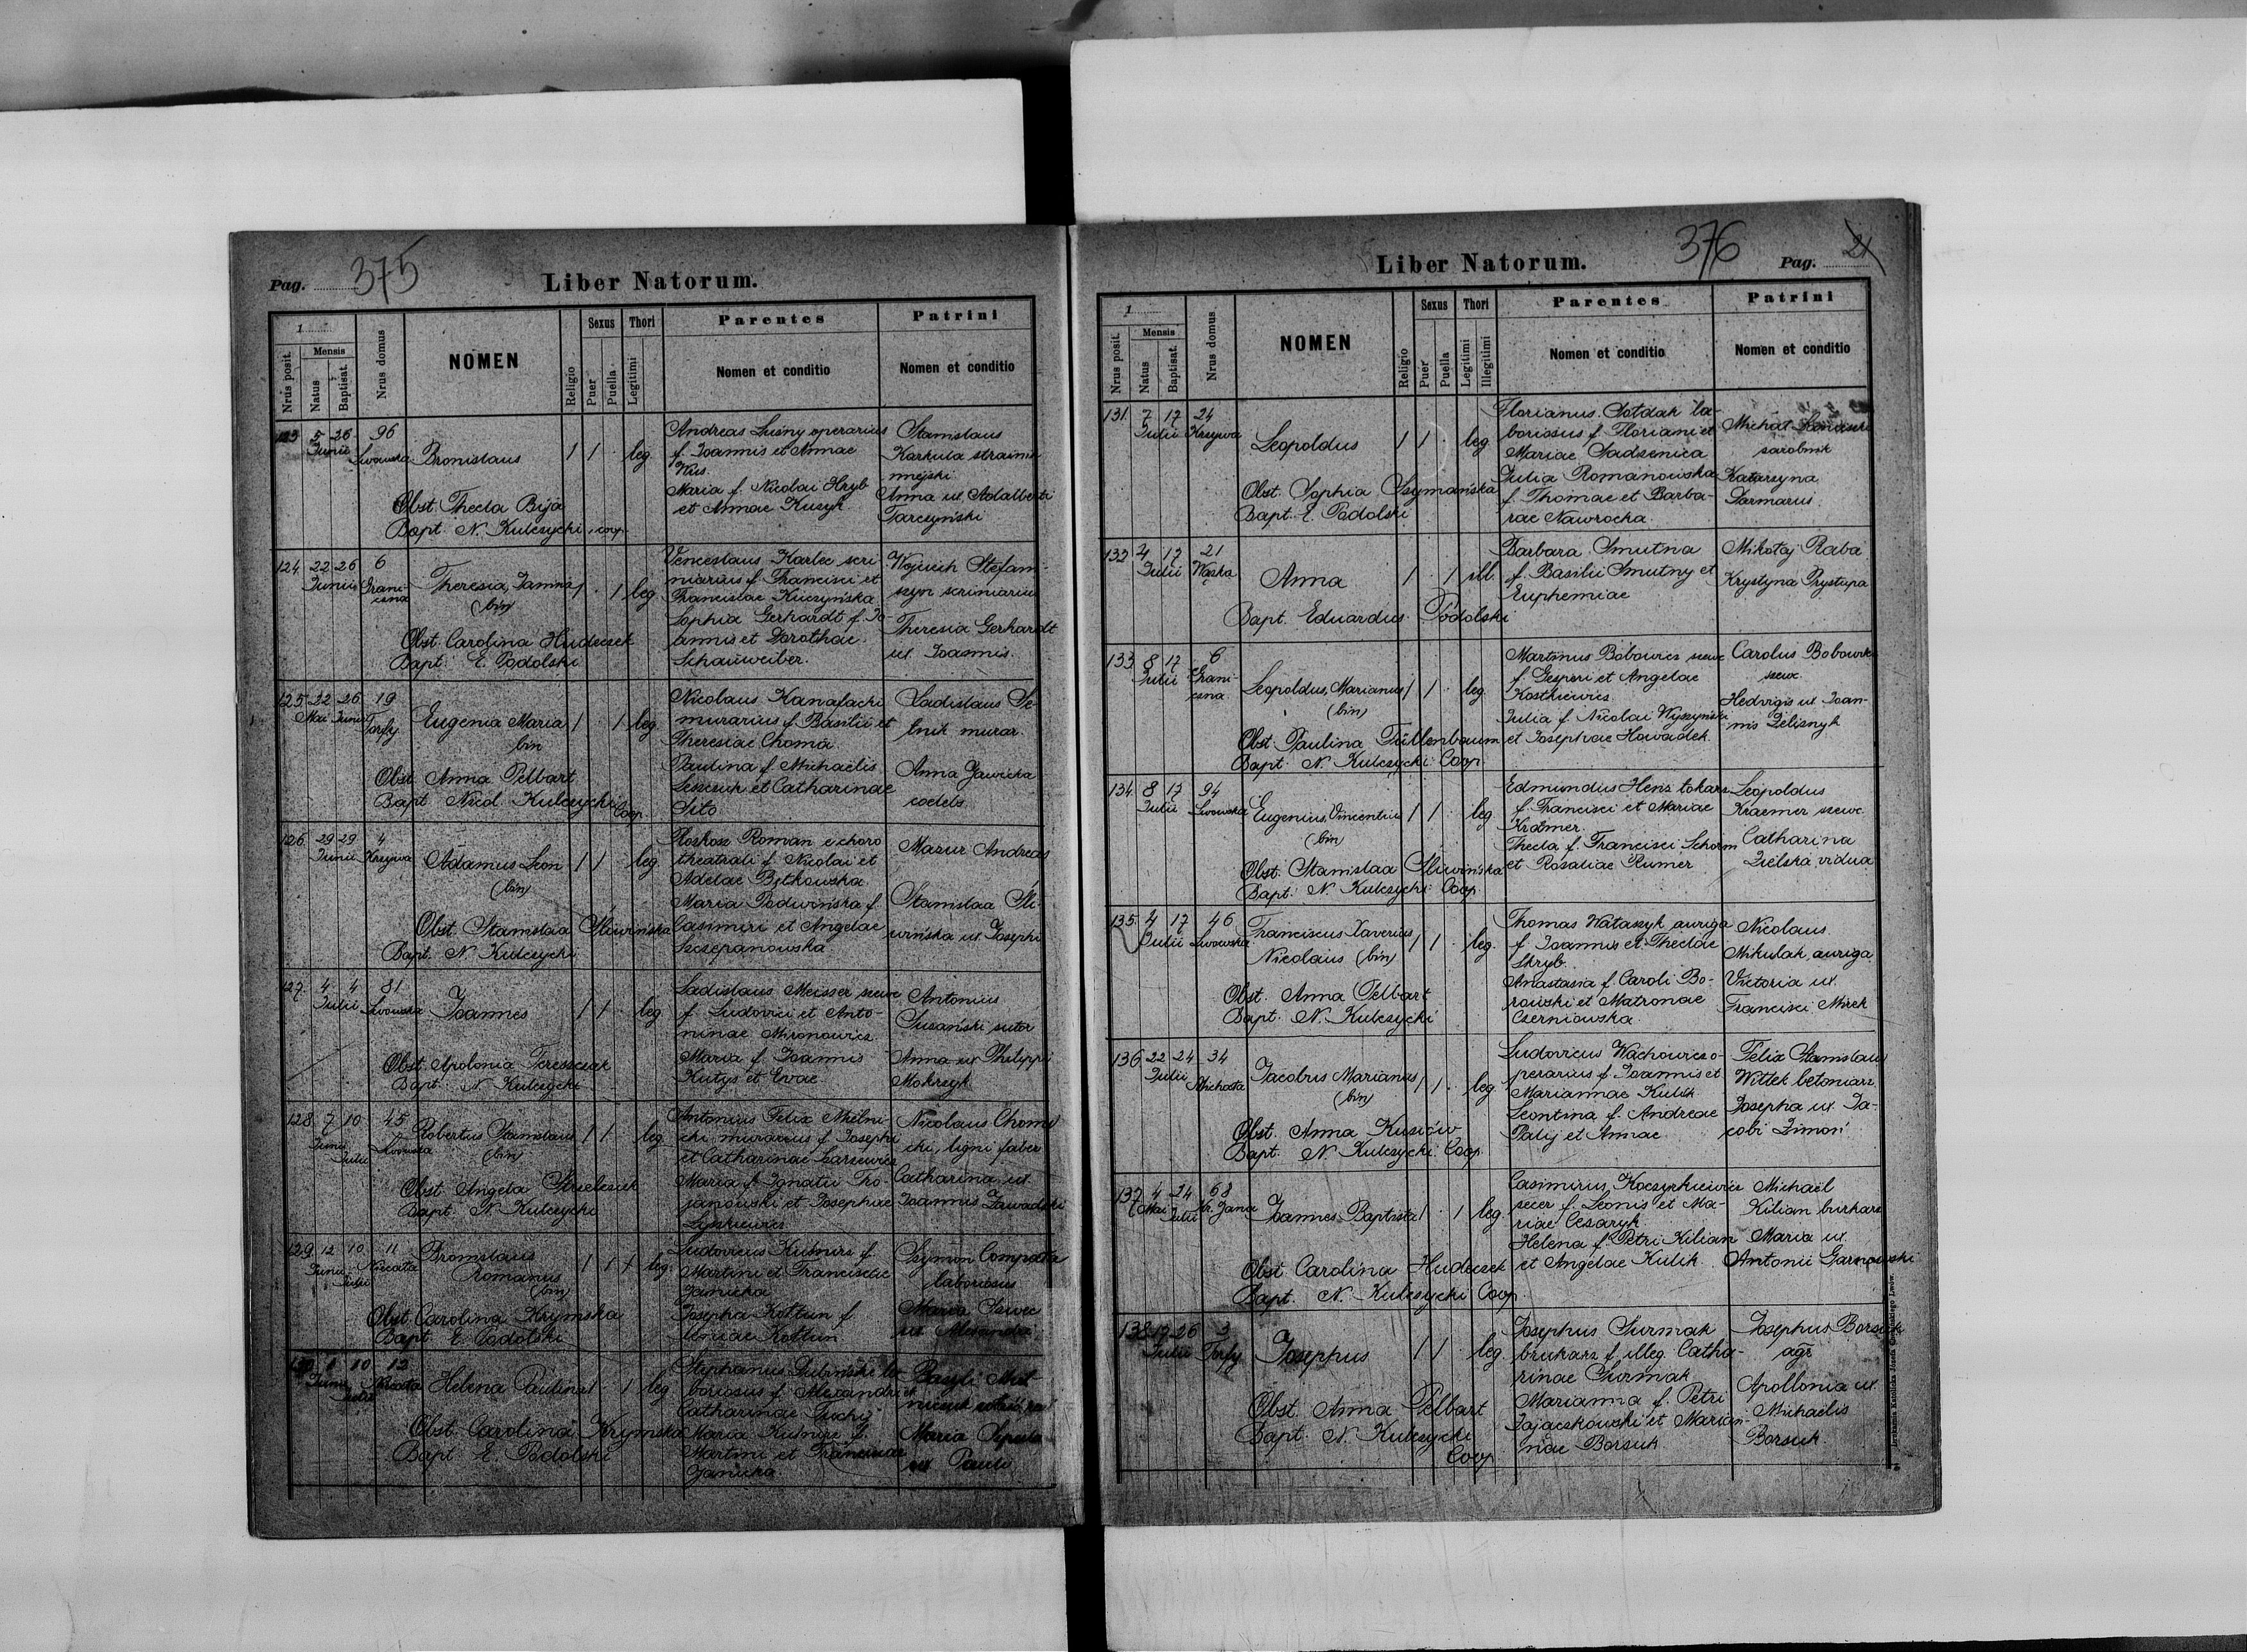 Pag. 375
Liber Natorum.
Nrus posit. 1 Mensis Natus Baptisat. Nrus domus NOMEN Religio Sexus Puer Puella Thori Legitimi Parentes Nomen et conditio Patrini Nomen et conditio
123 5 26 Junii 96 Lwowska Bronislaus 1 1 leg.
Andreas Luśny operarius
f. Joannis et Annae
Kus.
Maria f. Nicolai Hryb
et Annae Kuzyk
Stanislaus
Karkula strażnik
miejski
Anna ux. Adalberti
Tarczyński
Obst. Thecla Bija
Bapt. N. Kulczycki, coop.
124 22 26 Junii 6 Graniczna Theresia, Joanna (bin) 1 1 leg.
Venceslaus Karlec scri-
niarius f. Francisci et
Franciscae Kuczyńska
Sophia Gerhardt f. Jo-
annis et Dorothae
Schauweiber.
Wojciech Stefani-
szyn scriniarius
Theresia Gerhardt
ux. Joannis.
Obst. Carolina Hudeczek
Bapt. E. Podolski
125 22 26 Mai Juni 19 Torfy Eugenia Maria bin 1 1 leg.
Nicolaus Kanafacki
murarius f. Basilii et
Theresiae Choma
Paulina f. Michaelis
Leszczuk et Catharinae
Sito.
Ladislaus Se-
lnik murar.
Anna Jawicka
coelebs.
Obst. Anna Pelbart
Bapt. Nicol. Kulczycki
Coop.
126 29 29 Junii 4 Krzywa Adamus Leon (bin) 1 1 leg.
Roskosz Roman e choro
theatrali f. Nicolai et
Adelae Bętkowska
Maria Podwińska f.
Casimiri et Angelae
Szczepanowska
Mazur Andreas
Stanislaa Śli-
wińska ux. Josephi
Obst. Stanislaa Śliwińska
Bapt. N. Kulczycki
127 4 4 Julii 81 Lwowska Joannes 1 1 leg.
Ladislaus Meisser szewc
f. Ludovici et Anto-
ninae Mironowicz
Maria f. Joannis
Kutys et Evae
Antonius
Susański sutor
Anna ux. Philippi
Mokrzyk
Obst. Apolonia Tereszczak
Bapt. N. Kulczycki
128 7 10 Junii Julii 45 Lwowska Robertus Stanislaus (bin) 1 1 leg.
Antonius Felix Mielni-
cki murarius f. Josephi
et Catharinae Carzewicz
Maria f. Ignatii Tro-
janowski et Josephae
Lyskiewicz
Nicolaus Chomi-
cki, ligni faber
Catharina ux.
Joannis Zawadski
Obst. Angela Strielczuk
Bapt. N. Kulczycki
129 12 10 Junii Julii 11 Niecała Bronislaus Romanus (bin) 1 1 leg.
Ludovicus Kuśnirz f.
Martini et Franciscae
Janicka
Josepha Kottun f.
Annae Kottun
Szymon Compała
laboriosus
Maria Szwec
ux. Alexandri
Obst. Carolina Krymska
Bapt. E. Podolski
130 1 10 Junii Julii 12 Niecała Helena Paulina 1 1 leg.
Stephanus Dubiński la-
boriosus f. Alexandri et
Catharinae Tuchij
Maria Kuśnirz f.
Martini et Franciscae
Janicka
Basyli
Maria
ux. Pauli
Obst. Carolina Krymska
Bapt. E. Podolski
376 Pag. 21
Liber Natorum.
Nrus posit. 1 Mensis Natus Baptisat. Nrus domus NOMEN Religio Sexus Puer Puella Thori Legitimi Illegitimi Parentes Nomen et conditio Patrini Nomen et conditio
131. 7 17 Julii 24 Krzywa Leopoldus 1 1 leg.
Florianus Sołdak la-
boriosus f. Floriani et
Mariae Sadzenica
Julia Romanowska
f. Thomae et Barba-
rae Nawrocka.
Michał
zarobnik
Katarzyna
Darmarus
Obst. Sophia Szymańska
Bapt. E. Podolski
132 4 17 Julii 21 Wąska Anna 1 1 ill.
Barbara Smutna
f. Basilii Smutny et
Euphemiae
Mikołaj Raba
Krystyna Prystupa
Bapt. Eduardus Podolski
133 8 17 Julii 6 Graniczna Leopoldus, Marianus (bin) 1 1 leg.
Martinus Bobowicz szewc
f. Gesperi et Angelae
Kostkiewicz.
Julia f. Nicolai Wyszyński
et Josephae Hawadek.
Carolus Bobowski
szewc.
Hedvigis ux. Joan-
nis Zelisnyk
Obst. Paulina Tüllenbaum
Bapt. N. Kulczycki Coop.
134. 8 17 Julii 94 Lwowska Eugenius, Vincentius (bin) 1 1 leg.
Edmundus Henz tokarz
f. Francisci et Mariae
Krämer
Thecla f. Francisci Schorm
et Rosaliae Rumer
Leopoldus
Kraemer szewc.
Catharina
Zielska vidua
Obst. Stanislaa Śliwińska
Bapt. N. Kulczycki Coop.
135. 4 17 Julii 46 Lwowska Franciscus Xaverius Nicolaus (bin) 1 1 leg.
Thomas Wataszyk auriga
f. Joannis et Theclae
Skryb.
Anastasia f. Caroli Bo-
rowski et Matronae
Czerniowska.
Nicolaus
Mikulak, auriga
Victoria ux.
Francisci Mirek
Obst. Anna Pelbart
Bapt. N. Kulczycki
136 22 24 Julii 34 Michała Jacobus Marianus (bin) 1 1 leg.
Ludovicus Wachowicz o-
perarius f. Joannis et
Mariannae Kulik
Leontina f. Andreae
Palij et Annae
Felix Stanislaus
Wittek betoniarz
Josepha ux. Ja-
cobi Zimoń
Obst. Anna Kusiców
Bapt. N. Kulczycki Coop.
137 4 24 Mai Julii 68 Kr. Jana Joannes Baptista 1 1 leg.
Casimirus Koczyrkiewicz
secer f. Leonis et Ma-
riae Cesaryk
Helena f. Petri Kilian
et Angelae Kulik.
Michael
Kilian burkarz
Maria ux.
Antonii Garnowski
Obst. Carolina Hudeczek
Bapt. N. Kulczycki Coop.
138 17 26 Julii 3 Torfy Josephus 1 1 leg.
Josephus Surmak
brukarz f. illeg. Catha-
rinae Surmak
Marianna f. Petri
Zajaczkowski et Marian-
nae Borsuk.
Josephus Borsuk
agr.
Apollonia ux.
Michaelis
Borsuk.
Obst. Anna Pelbart
Bapt. N. Kulczycki
Coop.